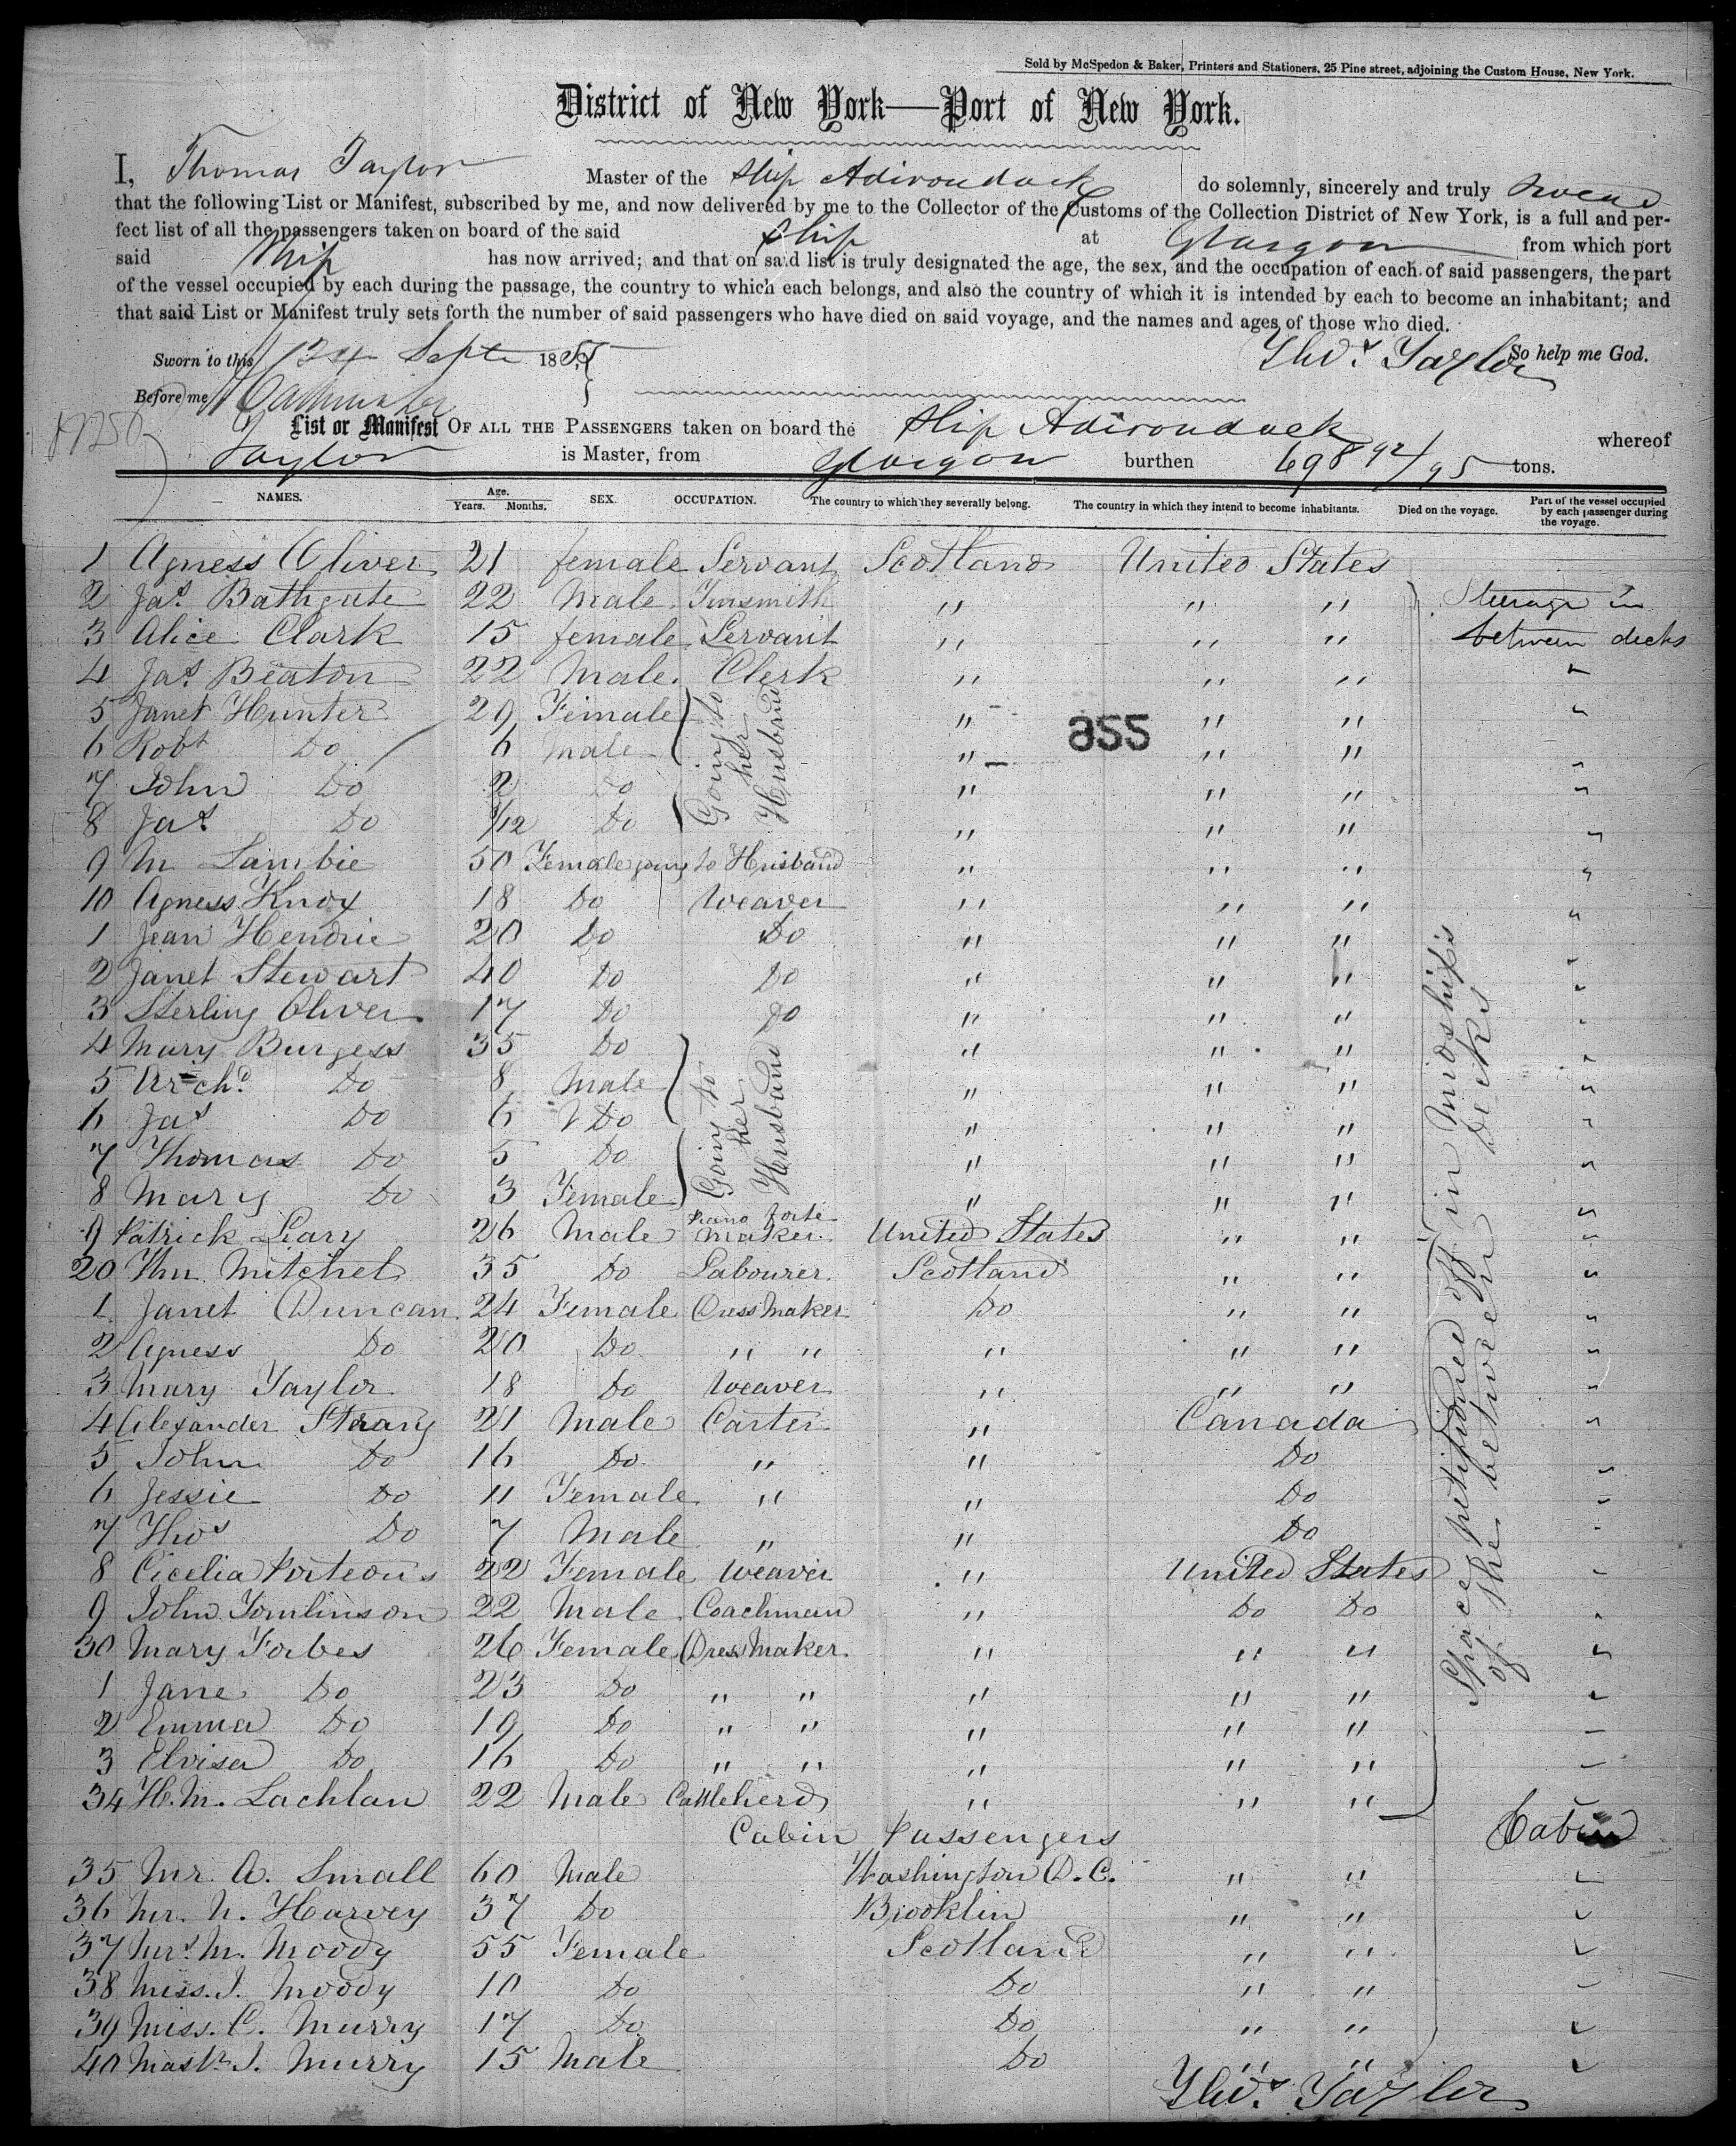 Sold by McSpedon & Baker, Printers and Stationers, 25 Pine street, adjoining the Custom House, New York.
District of New York—Port of New York.
I, Thomas Taylor Master of the Ship Adirondack do solemnly, sincerely and truly swear
that the following List or Manifest, subscribed by me, and now delivered by me to the Collector of the Customs of the Collection District of New York, is a full and per-
fect list of all the passengers taken on board of the said Ship at Glasgow from which port
said Ship has now arrived; and that on said list is truly designated the age, the sex, and the occupation of each of said passengers, the part
of the vessel occupied by each during the passage, the country to which each belongs, and also the country of which it is intended by each to become an inhabitant; and
that said List or Manifest truly sets forth the number of said passengers who have died on said voyage, and the names and ages of those who died.
Sworn to this Sept 1855 Thos. Taylor So help me God.
Before me
List or Manifest OF ALL THE PASSENGERS taken on board the Ship Adirondack whereof
Taylor is Master, from Glasgow burthen 698 92/95 tons.
NAMES. Age. Years. Months. SEX. OCCUPATION. The country to which they severally belong. The country in which they intend to become inhabitants. Died on the voyage. Part of the vessel occupied by each passenger during the voyage.
1 Agness Oliver 21 female Servant Scotland United States
2 Jas. Bathgate 22 Male Tinsmith " " " Steerage in
3 Alice Clark 15 female Servant " " " between decks
4 Jas. Beaton 22 Male. Clerk " " " "
5 Janet Hunter 29 Female Going to her Husband " " " "
855
6 Robt Do 6 male " " " "
7 John Do 2 Do " " " "
8 Jas Do /12 Do " " " "
9 M Lambie 50 Female going to Husband " " " "
10 Agness Knox 18 Do Weaver " " " "
1 Jean Hendrie 20 Do Do " " " "
2 Janet Stewart 40 Do Do " " " "
3 Sterling Oliver 17 Do Do " " " "
4 Mary Burgess 35 Do Going to her Husband " " " "
5 Archd. Do 8 Male " " " "
6 Jas Do 6 Do " " " "
7 Thomas Do 5 Do " " " "
8 Mary Do 3 Female " " " "
9 Patrick Leary 26 Male Piano forte maker United States " " "
20 Wm Mitchel 35 Do Labourer Scotland " " "
1 Janet Duncan 24 Female Dress Maker Do " " "
2 Agness Do 20 Do " " " " " "
3 Mary Taylor 18 Do Weaver " " " "
4 Alexander Strang 21 Male Carter " Canada "
5 John Do 16 Do " " Do "
6 Jessie Do 11 Female " " Do "
7 Thos Do 7 Male " " Do "
8 Cicelia Porteous 22 Female Weaver " United States "
9 John Tomlinson 22 Male Coachman " Do Do "
30 Mary Forbes 26 Female Dress Maker " " " "
1 Jane Do 23 Do " " " " " "
2 Emma Do 19 Do " " " " " "
3 Elvisa Do 16 Do " " " " " "
34 H. M. Lachlan 22 Male Cattleherd " " " "
Space petitioned off in midships of the between decks
Cabin Passengers Cabin
35 Mr. A. Small 60 Male Washington D.C. " " "
36 Mr. N. Harvey 37 Do Brooklin " " "
37 Mrs. M. Moody 55 Female Scotland " " "
38 Miss. J. Moody 10 Do Do " " "
39 Miss. C. Murry 17 Do Do " " "
40 Mastr. J. Murry 15 Male Do " " "
Thos. Taylor